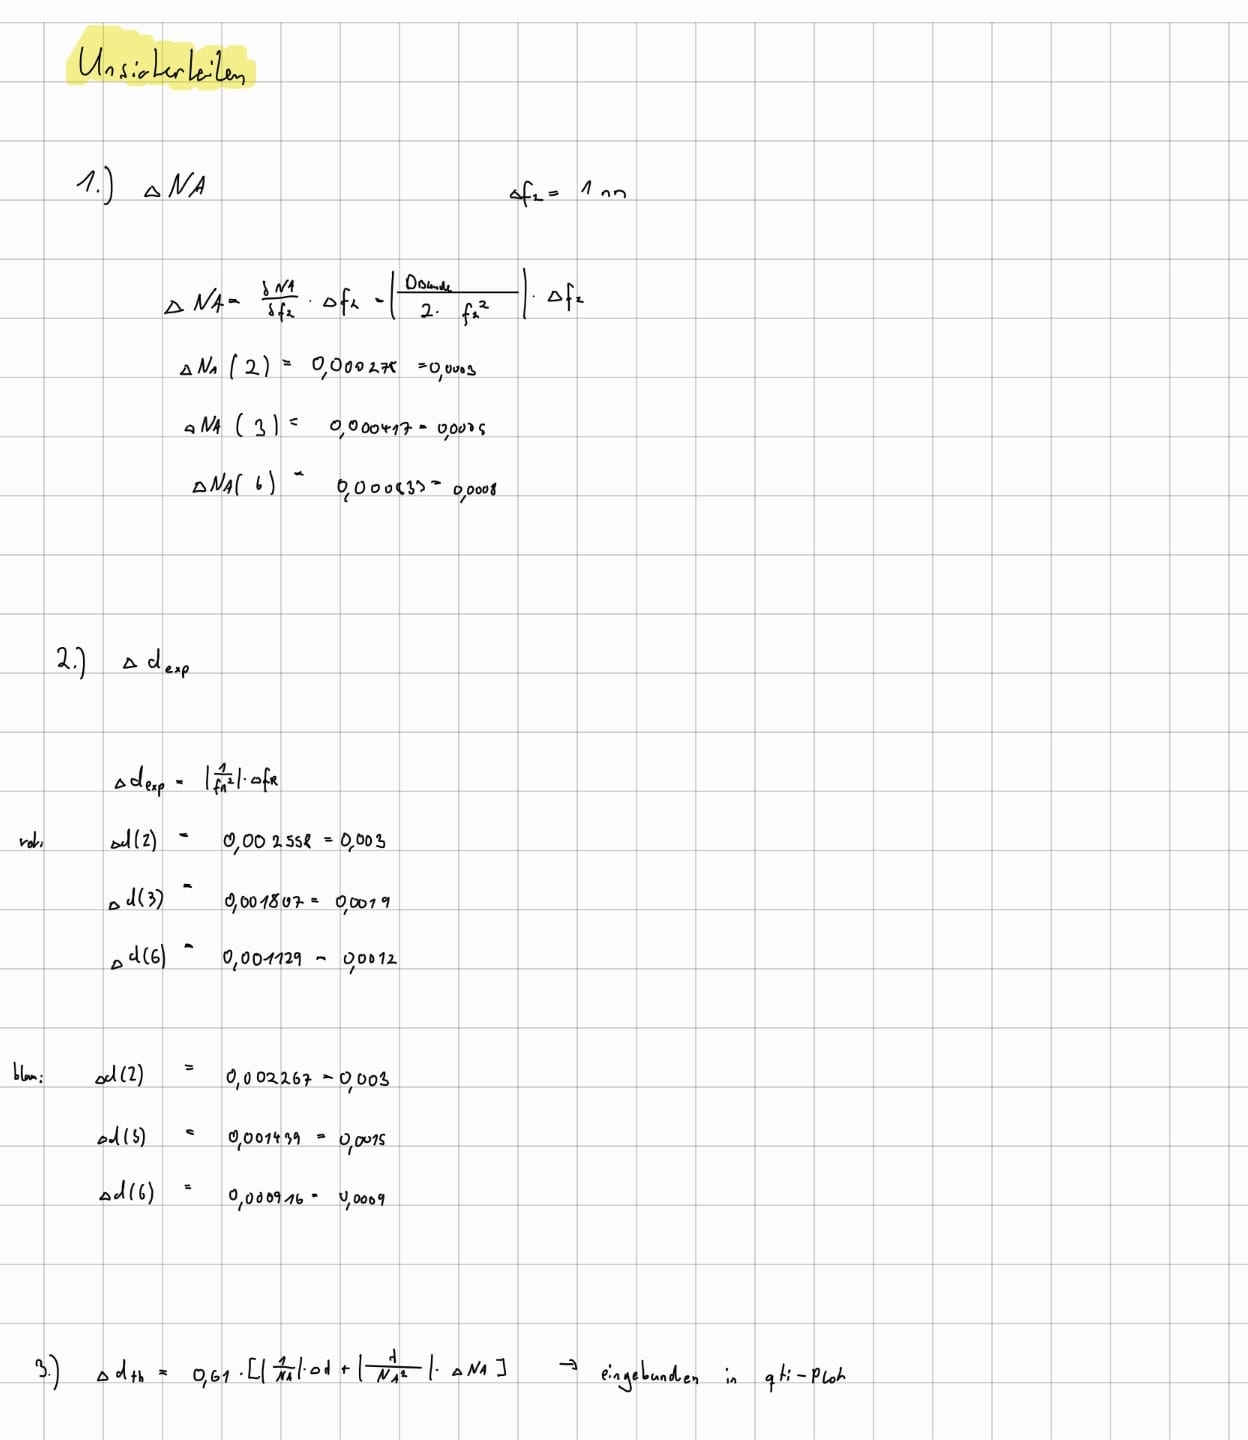 Unsicherheiten
1.) Δ NA Δf₂ = 1 mm
Δ NA = δNA/δf₂ · Δf₂ = |DBlende/2· f₂²| · Δf₂
ΔNA (2) = 0,000278 = 0,0003
ΔNA (3) = 0,000417 = 0,0005
ΔNA (6) = 0,000833 = 0,0008
2.) Δ dexp
Δdexp = |1/fR²| · ΔfR
rot: Δd(2) = 0,002558 = 0,003
Δd(3) = 0,001807 = 0,0019
Δd(6) = 0,001129 = 0,0012
blau: Δd(2) = 0,002267 = 0,003
Δd(3) = 0,001439 = 0,0015
Δd(6) = 0,000916 = 0,0009
3.) Δ dth = 0,61 · [|1/NA| · Δd + |d/NA²| · ΔNA] → eingebunden in qti-Plot